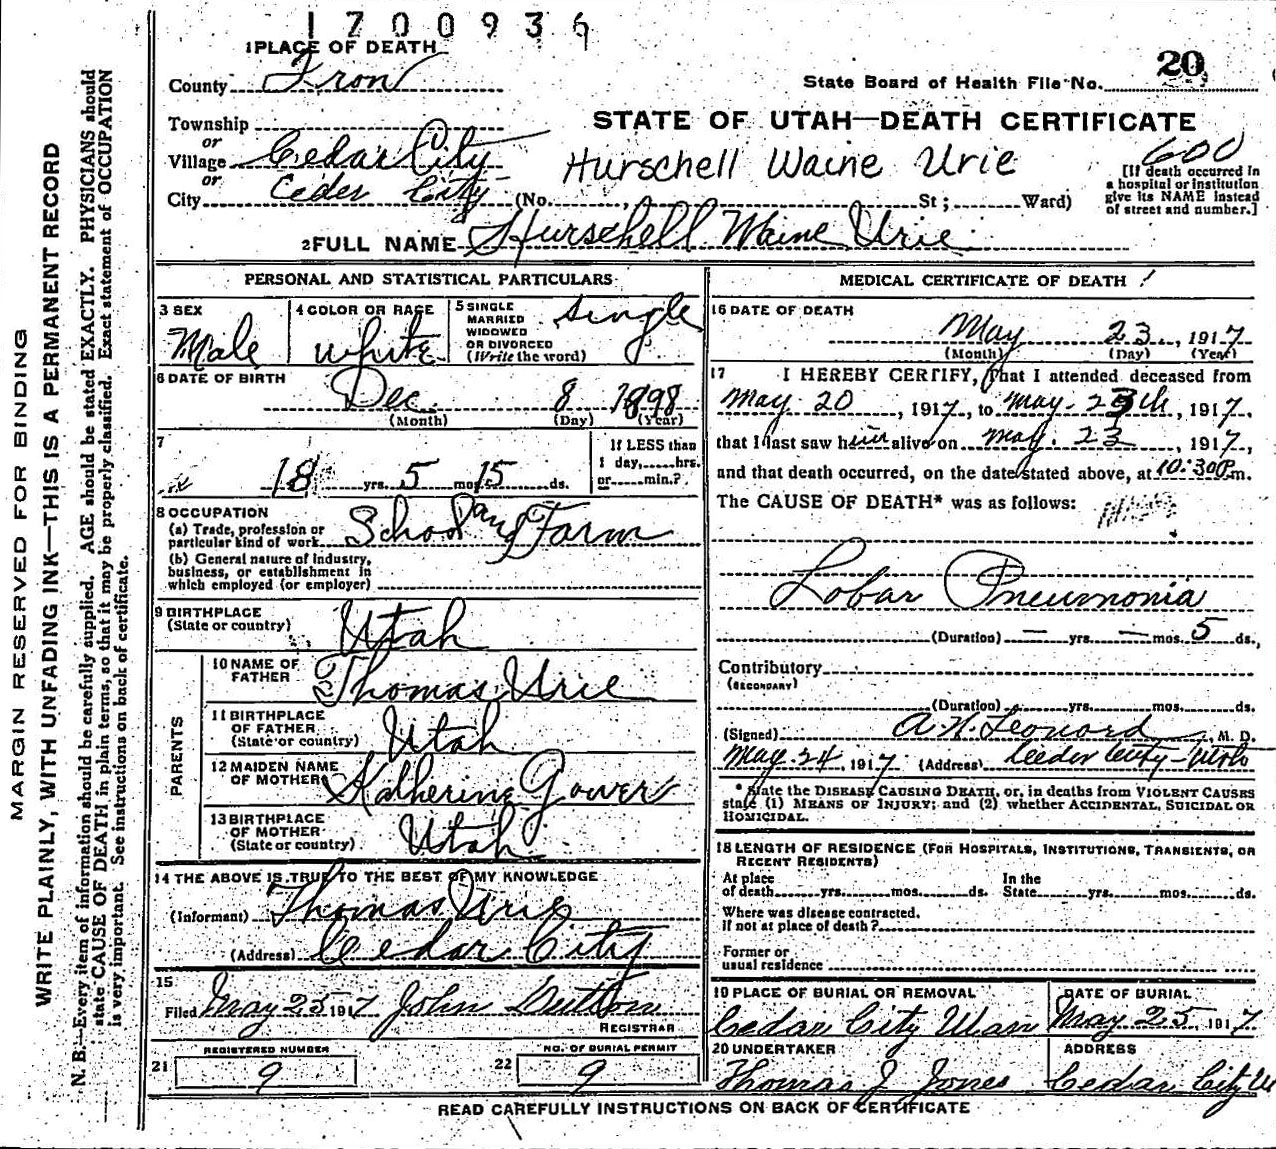 1700936
1 PLACE OF DEATH
County Iron
State Board of Health File No. 20
Township
or
Village Cedar City
or
City Ceder City (No. , St; Ward)
STATE OF UTAH—DEATH CERTIFICATE
Hurschell Waine Urie
600
[If death occurred in
a hospital or institution
give its NAME instead
of street and number.]
2 FULL NAME Hurschell Waine Urie
PERSONAL AND STATISTICAL PARTICULARS
3 SEX
Male
4 COLOR OR RACE
white
5 SINGLE
MARRIED
WIDOWED
OR DIVORCED
(Write the word)
single
6 DATE OF BIRTH
Dec 8 1898
(Month) (Day) (Year)
7
18 yrs. 5 mos. 15 ds.
If LESS than
1 day,......hrs.
or......min.?
8 OCCUPATION
(a) Trade, profession or
particular kind of work School and Farm
(b) General nature of industry,
business, or establishment in
which employed (or employer)
9 BIRTHPLACE
(State or country) Utah
PARENTS
10 NAME OF
FATHER Thomas Urie
11 BIRTHPLACE
OF FATHER
(State or country) Utah
12 MAIDEN NAME
OF MOTHER Katherine Gower
13 BIRTHPLACE
OF MOTHER
(State or country) Utah
14 THE ABOVE IS TRUE TO THE BEST OF MY KNOWLEDGE
(Informant) Thomas Urie
(Address) Cedar City
15
Filed May 25 1917 John
REGISTRAR
21 REGISTERED NUMBER
9
22 NO. OF BURIAL PERMIT
9
MEDICAL CERTIFICATE OF DEATH
16 DATE OF DEATH
May 23, 1917
(Month) (Day) (Year)
17 I HEREBY CERTIFY, That I attended deceased from
May 20, 1917, to May- 23th, 1917,
that I last saw him alive on May. 23, 1917,
and that death occurred, on the date stated above, at 10:30 P.m.
The CAUSE OF DEATH* was as follows:
Lobar Pneumonia
(Duration) — yrs. — mos. 5 ds.,
Contributory
(SECONDARY)
(Duration) yrs. mos. ds.
(Signed) A. N. Leonard, M. D.
May-24, 1917 (Address) Ceeder City-Utah
* State the DISEASE CAUSING DEATH, or, in deaths from VIOLENT CAUSES
state (1) MEANS OF INJURY; and (2) whether ACCIDENTAL, SUICIDAL OR
HOMICIDAL.
18 LENGTH OF RESIDENCE (FOR HOSPITALS, INSTITUTIONS, TRANSIENTS, OR
RECENT RESIDENTS)
At place
of death......yrs......mos......ds.
In the
State......yrs......mos......ds.
Where was disease contracted.
If not at place of death?
Former or
usual residence
19 PLACE OF BURIAL OR REMOVAL
Cedar City Utah
DATE OF BURIAL
May 25 1917
20 UNDERTAKER
Thomas J Jones
ADDRESS
Cedar City U
READ CAREFULLY INSTRUCTIONS ON BACK OF CERTIFICATE
MARGIN RESERVED FOR BINDING
WRITE PLAINLY, WITH UNFADING INK—THIS IS A PERMANENT RECORD
N. B.—Every item of information should be carefully supplied. AGE should be stated EXACTLY. PHYSICIANS should
state CAUSE OF DEATH in plain terms, so that it may be properly classified. Exact statement of OCCUPATION
is very important. See instructions on back of certificate.